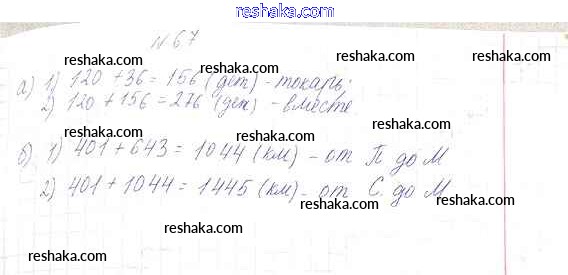 reshaka.com
№67
reshaka.com reshaka.com
а) 1) 120 + 36 = 156 (дет) - токарь;
2) 120 + 156 = 276 (дет) - вместе.
reshaka.com reshaka.com
б) 1) 401 + 643 = 1044 (км) - от П до М
reshaka.com reshaka.com
2) 401 + 1044 = 1445 (км) - от С. до М
reshaka.com reshaka.com
reshaka.com reshaka.com
reshaka.com